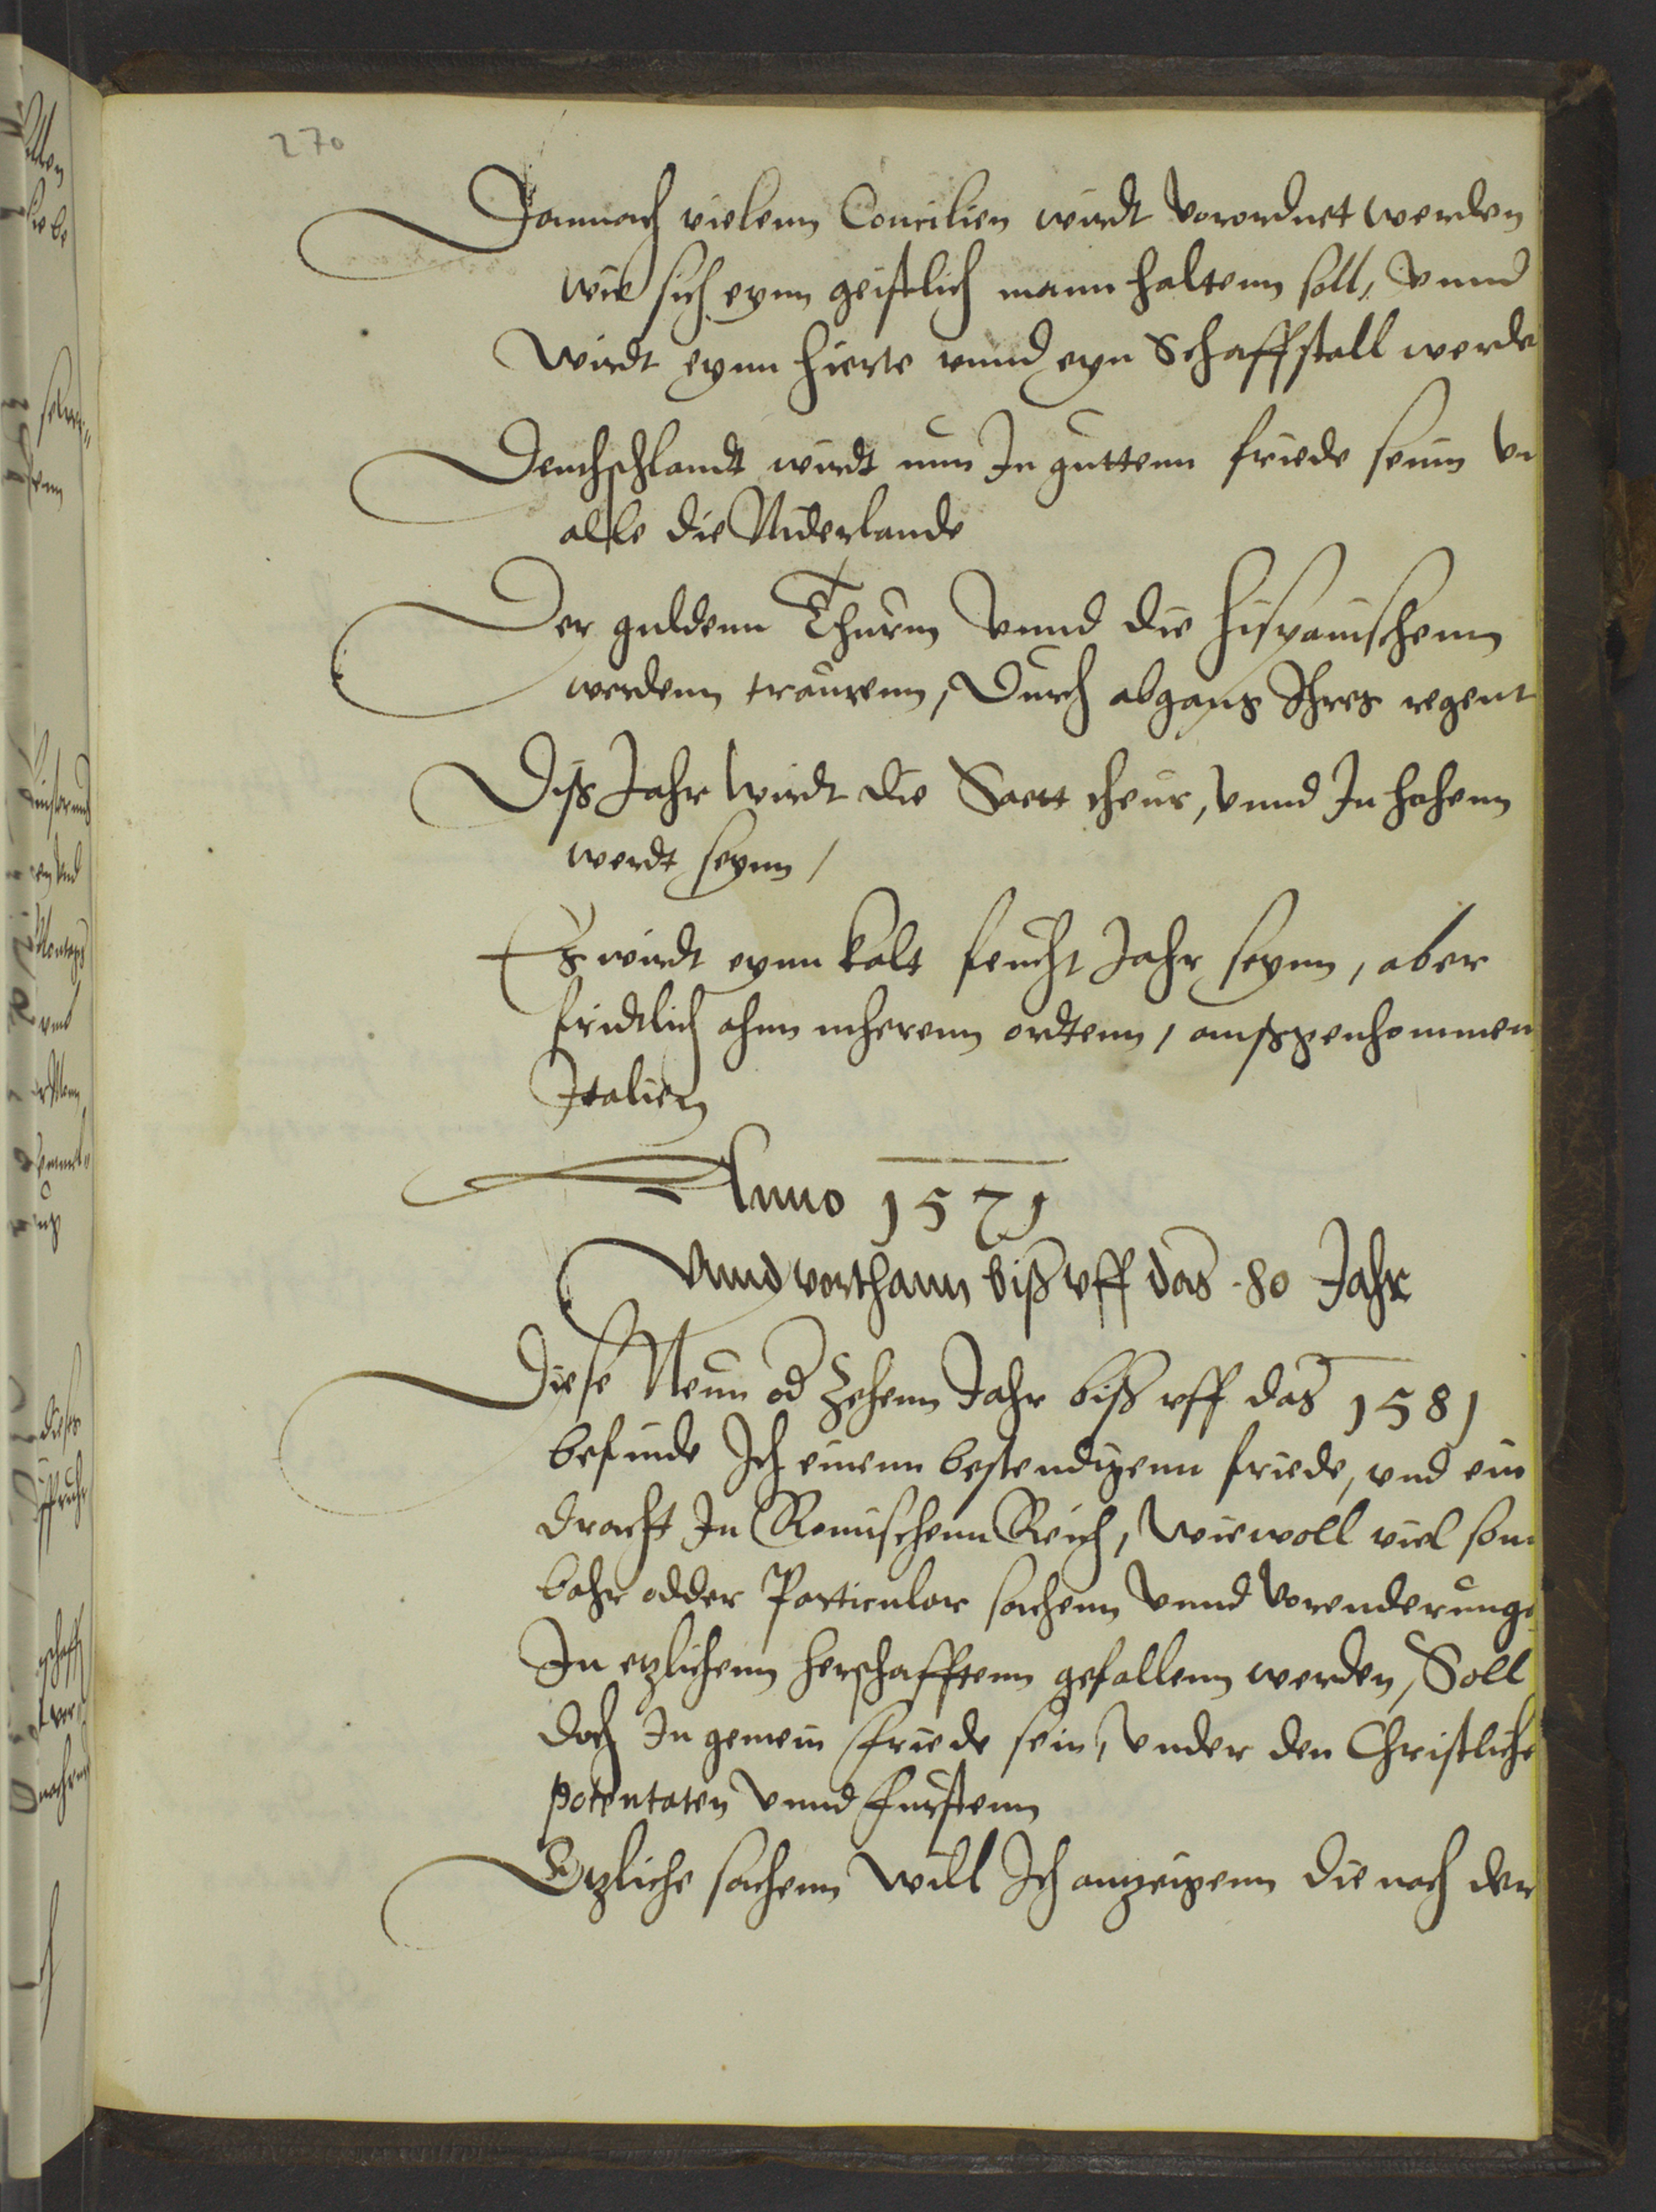 270
Darnach vielenn Concilien wirdt vorordnet werden
wie sich eynn geistlich mann haltenn soll, vnnd
Wirdt eynn hierte vnnd eyn Schaffstall werde
Deuchschlandt wirdt nun In guttenn friede seinn vn
alle die Niderlande
Der guldenn Thurm vnnd die hispanischenn
werdenn traurenn, Durch abgang Ihres regent
Diß Jahr wirdt die Saett theur, vnnd In hohenn
werdt seynn /
Es wirdt eynn kalt feucht Jahr seynn, aber
fridtlich ahnn mherenn ordtenn, außgenhommen
Italien
Anno 1571
Vnnd vorthann biß vff das .80 Jahr
Diese Neun od Zehenn Jahr biß vff das 1581
befinde Ich einenn bestendigenn friede, vnd ein
dracht In Romischenn Reich, Wiewoll viel son
bahr odder Particular sachenn vnnd vorenderunge
In etzlichenn herschafftenn gefallenn werden, Soll
doch In gemein friede sein, vnder den Christliche
potentaten vnnd furstenn
Etzliche sachenn will Ich anzeigenn die nach der